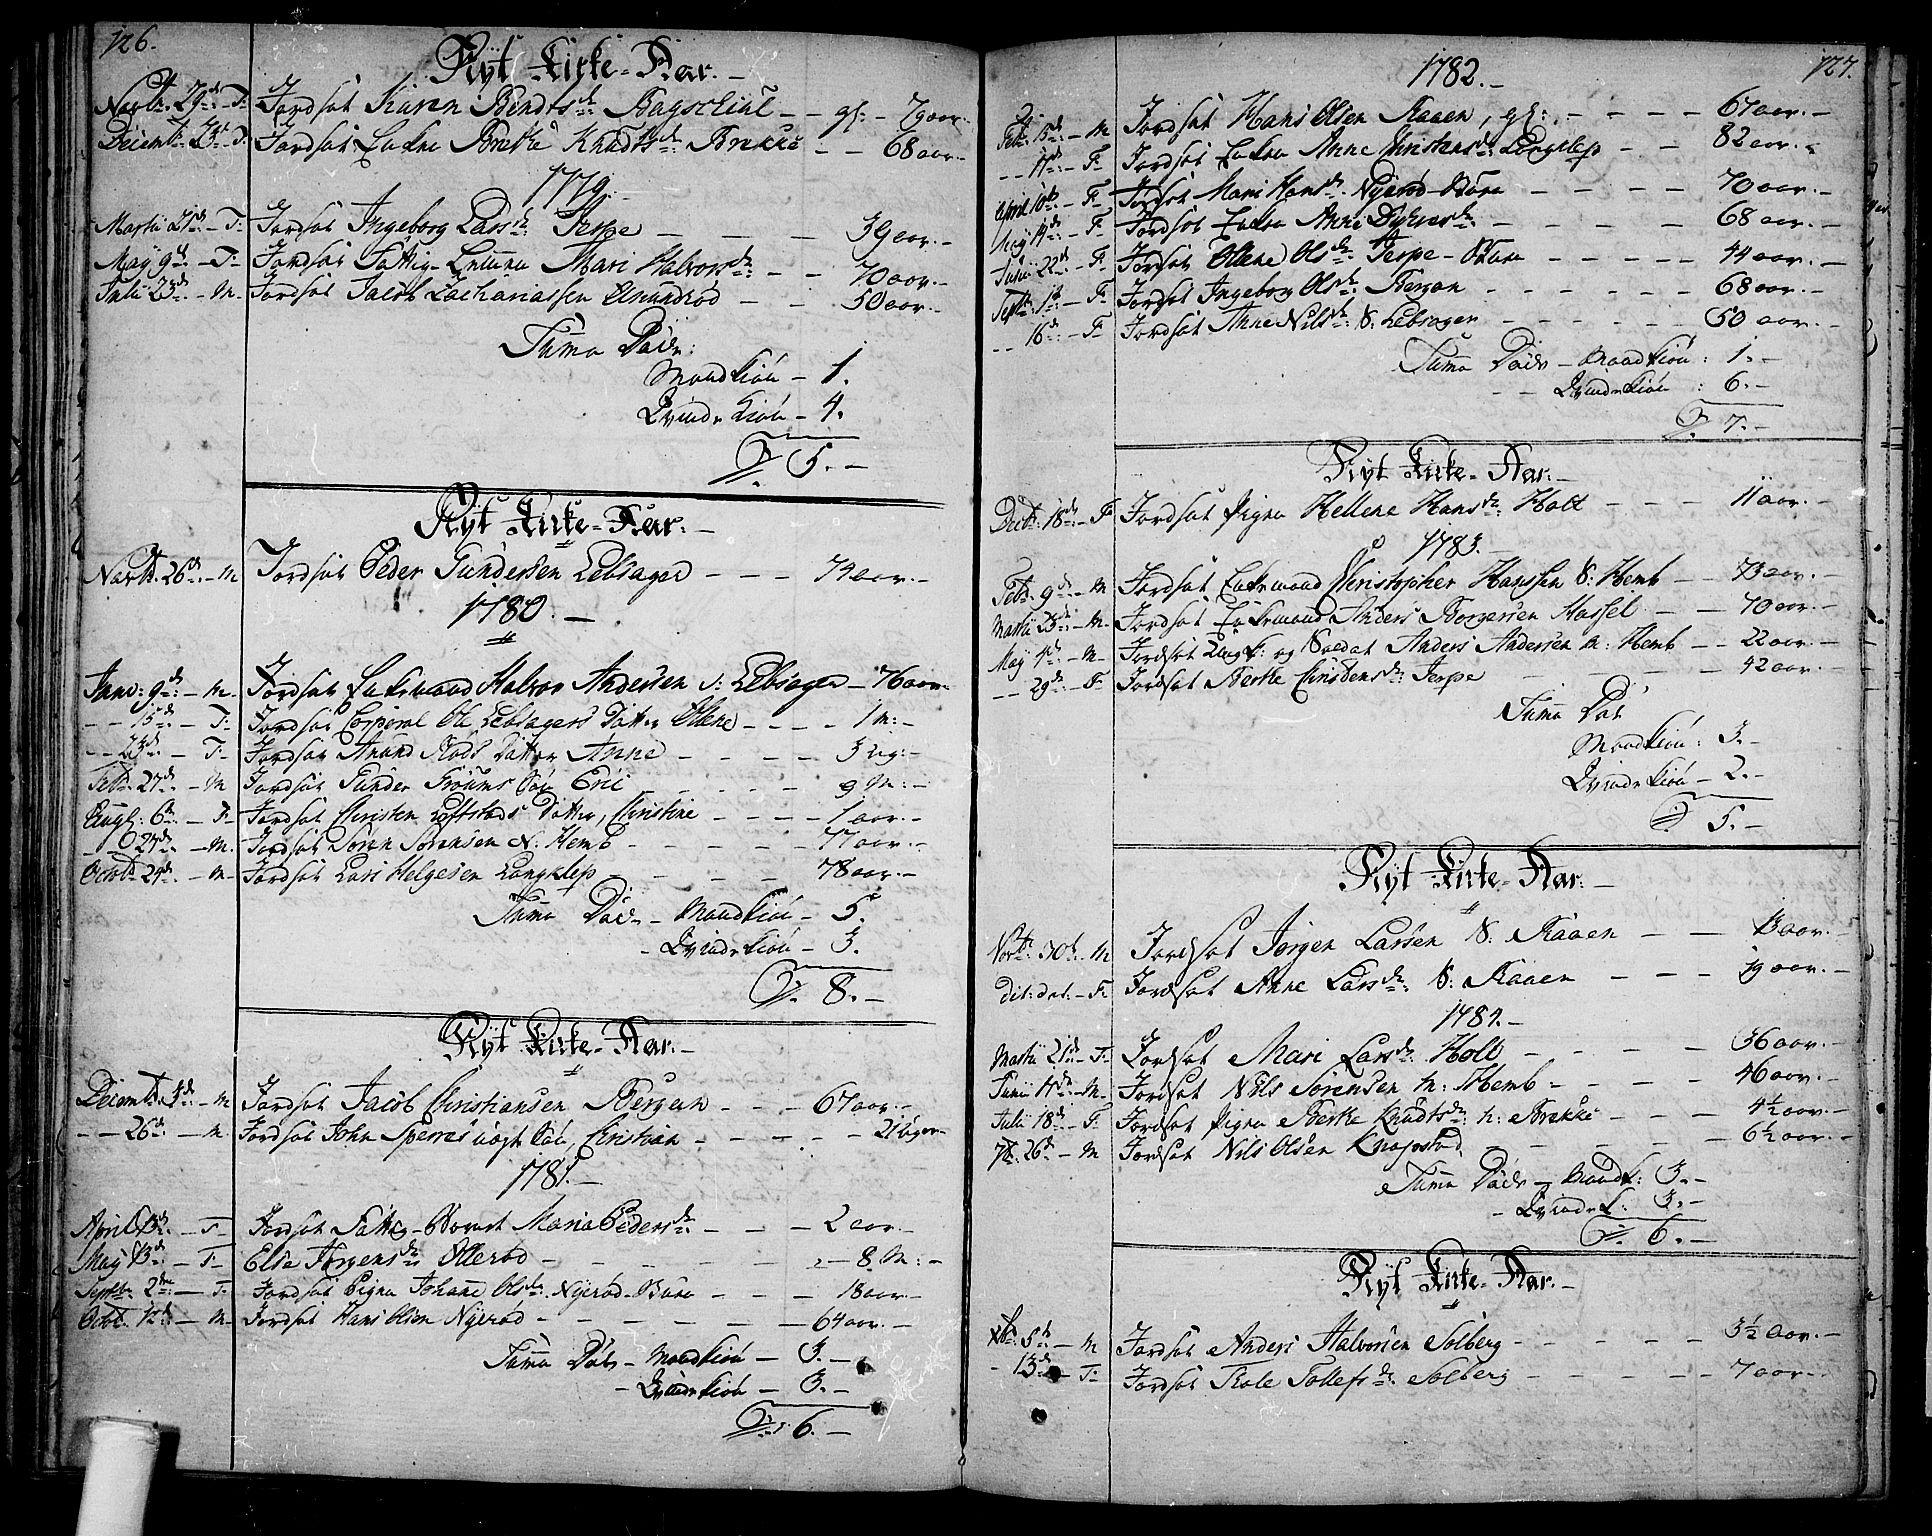 126.
Nyt Kirke-Aar.-
Novb. 29de. - F. Jordsat Karen Bendtsdr. Bagschiul - - gl: - 79 aar.-
Decemb. 23de. F. Jordsat Enken Berthe Knudtsdr. Brekke - - 68 aar.-
1779.-
Martii 21de. - F. Jordsat Ingeborg Larsdr. Jerpe - - - 39 aar.-
May 9de. - F. Jordsat Fattig-Lemme Mari Halvorsdr. - - 70 aar.-
Julii 25de. - M. Jordsat Jacob Zachariassen Amundrød - - 50 aar.-
Suma Døde:
Mandkiön - 1.
Qvindekiön - 4.
S. 5.-
Nyt Kirke-Aar.-
Novb. 26de. - M Jordsat Peder Gundersen Lebsager - - - 74 aar.-
1780.-
Janv: 9de: - M. Jordsat Enkemand Halvor Andersen S: Lebsager - 76 aar.
- - 15de. - F: Jordsat Corporal Ole Lebsagers Datter Olene - - - - 1 M: -
- - 23de. - F: Jordsat Amund Røds Datter Anne - - - - 3 Ug: -
Feb. 27de. - M Jordsat Gunder Frøums Søn Eric - - - - 9 M: -
Augl: 6te. - F. Jordsat Christen Loftstads Datter, Christine - - - - 1 aar.-
- - 27de. - M. Jordsat Søren Sørensen N: Hemb - - - - - 77 aar.-
Octb. 29de. - M. Jordsat Lars Helgesen Langklep - - - - 78 aar.-
Suma Døde - Mandkiön - 5.
- Qvindekiön - 3.
S. 8.-
Nyt Kirke-Aar.-
Decemb. 3de. - M Jordsat Jacob Christiansen Bergan - - - 67 aar.-
- - 26de. - M. Jordsat John Sperrevogt Søn, Christian - - - - - 21 Uger
1781.-
April 13de. - F. Jordsat Fattig-Barnet Maria Pedersdr. - - - 2 aar.-
May 13de. - F. Else Jørgensdr. Ollerød - - - - - - 8 M: -
Septbr. 2den. - F. Jordsat Pigen Johanne Olsdr. Nyerød-Bura - - - 18 aar.-
Octb. 12de. - M. Jordsat Hans Olsen Nyerød - - - - - 64 aar.-
Suma Døde - Mandkiön - 3.-
- Qvindekiön - 3.-
S. 6.-
1782.-
127.
Feb. 15de. - M Jordsat Hans Olsen Kaaen, gl: - - - - 67 aar.-
- - 17de: - F. Jordsat Enken Anne Christensdr. Langklep - - 82 aar.-
April 10de. - F. Jordsat Mari Hansdr. Nyerød-Bura - - - - 70 aar.-
May 19de. - F. Jordsat Enken Anne Dyhresdr. - - - - - 68 aar.-
Junii 22de. - F. Jordsat Olene Olsdr. Jerpe-Bura - - - - 44 aar.-
Septb. 1ste. - F. Jordsat Ingeborg Olsdr. Bergan - - - - - 68 aar.-
- - 16de. - F. Jordsat Anne Nilsdr: S. Lebsager - - - - - 50 aar.-
Suma Døde - Mandkiön: 1.-
- - Qvindekiön: 6.-
S. 7.-
Nyt Kirke-Aar.-
Decb: 18de. - F. Jordsat Pigen Hellene Hansdr. Holt - - - 11 aar.-
1783.-
Feb. 9de: - M Jordsat Enkemand Christopher Hansen S: Hemb - - 73 aar.-
Martii 23de. - M. Jordsat Enkemand Anders Borgersen Hassel - - 70 aar.-
May 1ste. - M- Jordsat Ungk: og Soldat Anders Andersen M: Hemb - - 22 aar.-
- - 29de: - F. Jordsat Berthe Christensdr. Jerpe - - - - 42 aar.-
Suma Døde
Mandkiön: 3.-
Qvindekiön - 2.-
S. 5.-
Nyt Kirke-Aar.-
Novb. 30te. - M Jordsat Jørgen Larsen S: Kaaen - - - 13 aar.-
Dit: dat. - F. Jordsat Anne Larsdr. S: Kaaen - - - 19 aar.-
1784.-
Martii 21de. - F. Jordsat Mari Larsdr. Holt - - - - - 36 aar.-
Junii 17de. - M. Jordsat Nils Sørensen M: Hemb - - - - 46 aar.-
Julii 18de. - F. Jordsat Pigen Berthe Knudtsdr: N: Brekke - - - 4½ aar.-
7b. 26de. - M Jordsat Nils Olsen Knapstad - - - - - 6½ aar.-
Suma Døde - Mandk: 3.-
- Qvindek: 3.-
S. 6.-
Nyt Kirke-Aar.-
Xb: 5te. - M Jordsat Anders Halvorsen Solberg - - - - 3½ aar.-
- 13de. - F. Jordsat Thale Tollefsdr. Solberg - - - - 7 aar.-